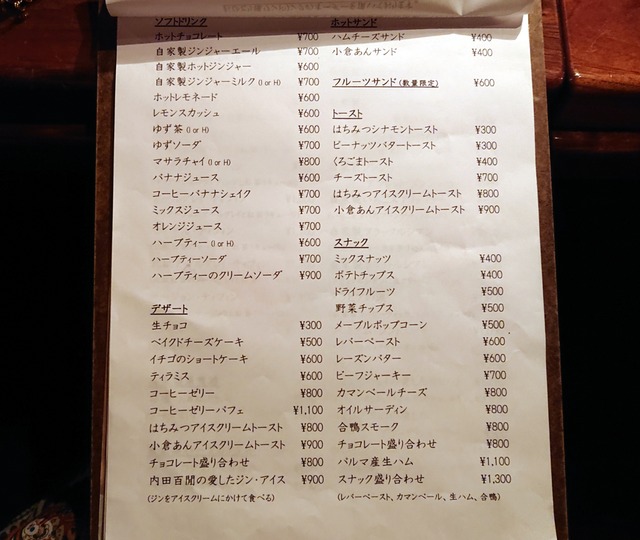 ソフトドリンク
ホットチョコレート ¥700
自家製ジンジャーエール ¥700
自家製ホットジンジャー ¥600
自家製ジンジャーミルク (I or H) ¥700
ホットレモネード ¥600
レモンスカッシュ ¥600
ゆず茶 (I or H) ¥600
ゆずソーダ ¥700
マサラチャイ (I or H) ¥800
バナナジュース ¥600
コーヒーバナナシェイク ¥700
ミックスジュース ¥700
オレンジジュース ¥700
ハーブティー (I or H) ¥600
ハーブティーソーダ ¥700
ハーブティーのクリームソーダ ¥900
デザート
生チョコ ¥300
ベイクドチーズケーキ ¥500
イチゴのショートケーキ ¥600
ティラミス ¥600
コーヒーゼリー ¥800
コーヒーゼリーパフェ ¥1,100
はちみつアイスクリームトースト ¥800
小倉あんアイスクリームトースト ¥900
チョコレート盛り合わせ ¥800
内田百閒の愛したジン・アイス ¥900
(ジンをアイスクリームにかけて食べる)
ホットサンド
ハムチーズサンド ¥400
小倉あんサンド ¥400
フルーツサンド (数量限定) ¥600
トースト
はちみつシナモントースト ¥300
ピーナッツバタートースト ¥300
くろごまトースト ¥400
チーズトースト ¥700
はちみつアイスクリームトースト ¥800
小倉あんアイスクリームトースト ¥900
スナック
ミックスナッツ ¥400
ポテトチップス ¥400
ドライフルーツ ¥500
野菜チップス ¥500
メープルポップコーン ¥500
レバーペースト ¥600
レーズンバター ¥600
ビーフジャーキー ¥700
カマンベールチーズ ¥800
オイルサーディン ¥800
合鴨スモーク ¥800
チョコレート盛り合わせ ¥800
パルマ産生ハム ¥1,100
スナック盛り合わせ ¥1,300
(レバーペースト、カマンベール、生ハム、合鴨)